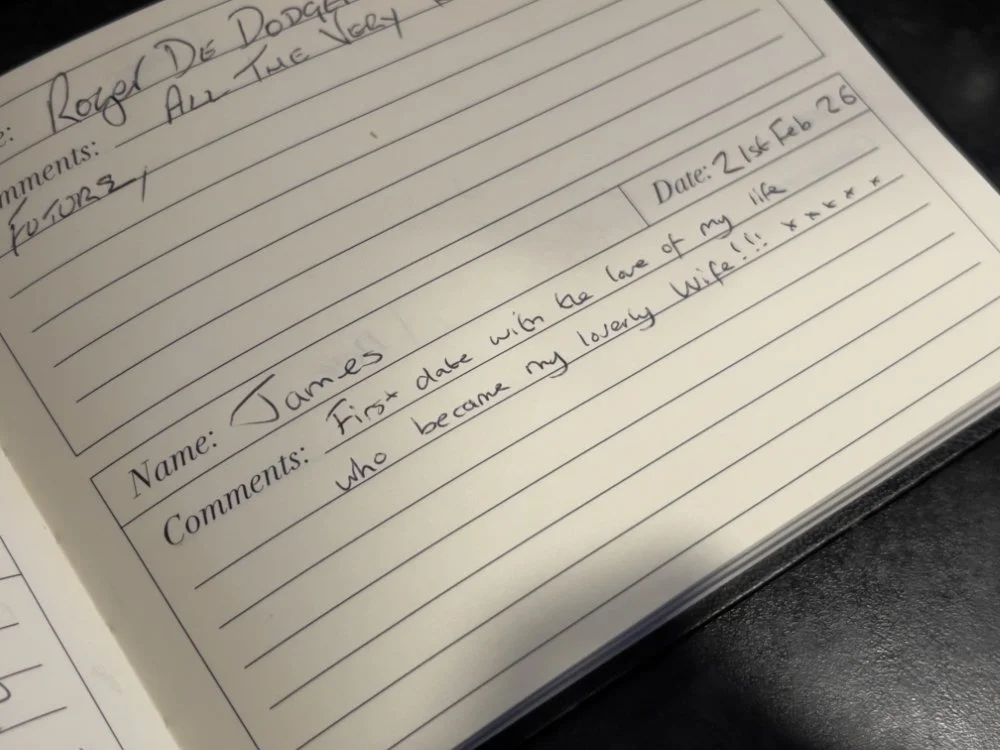 Roger De Dodge
Comments: All The Very
Future,
Date: 21st Feb 26
Name: James
Comments: First date with the love of my life
who became my loverly Wife!!! x x x x x